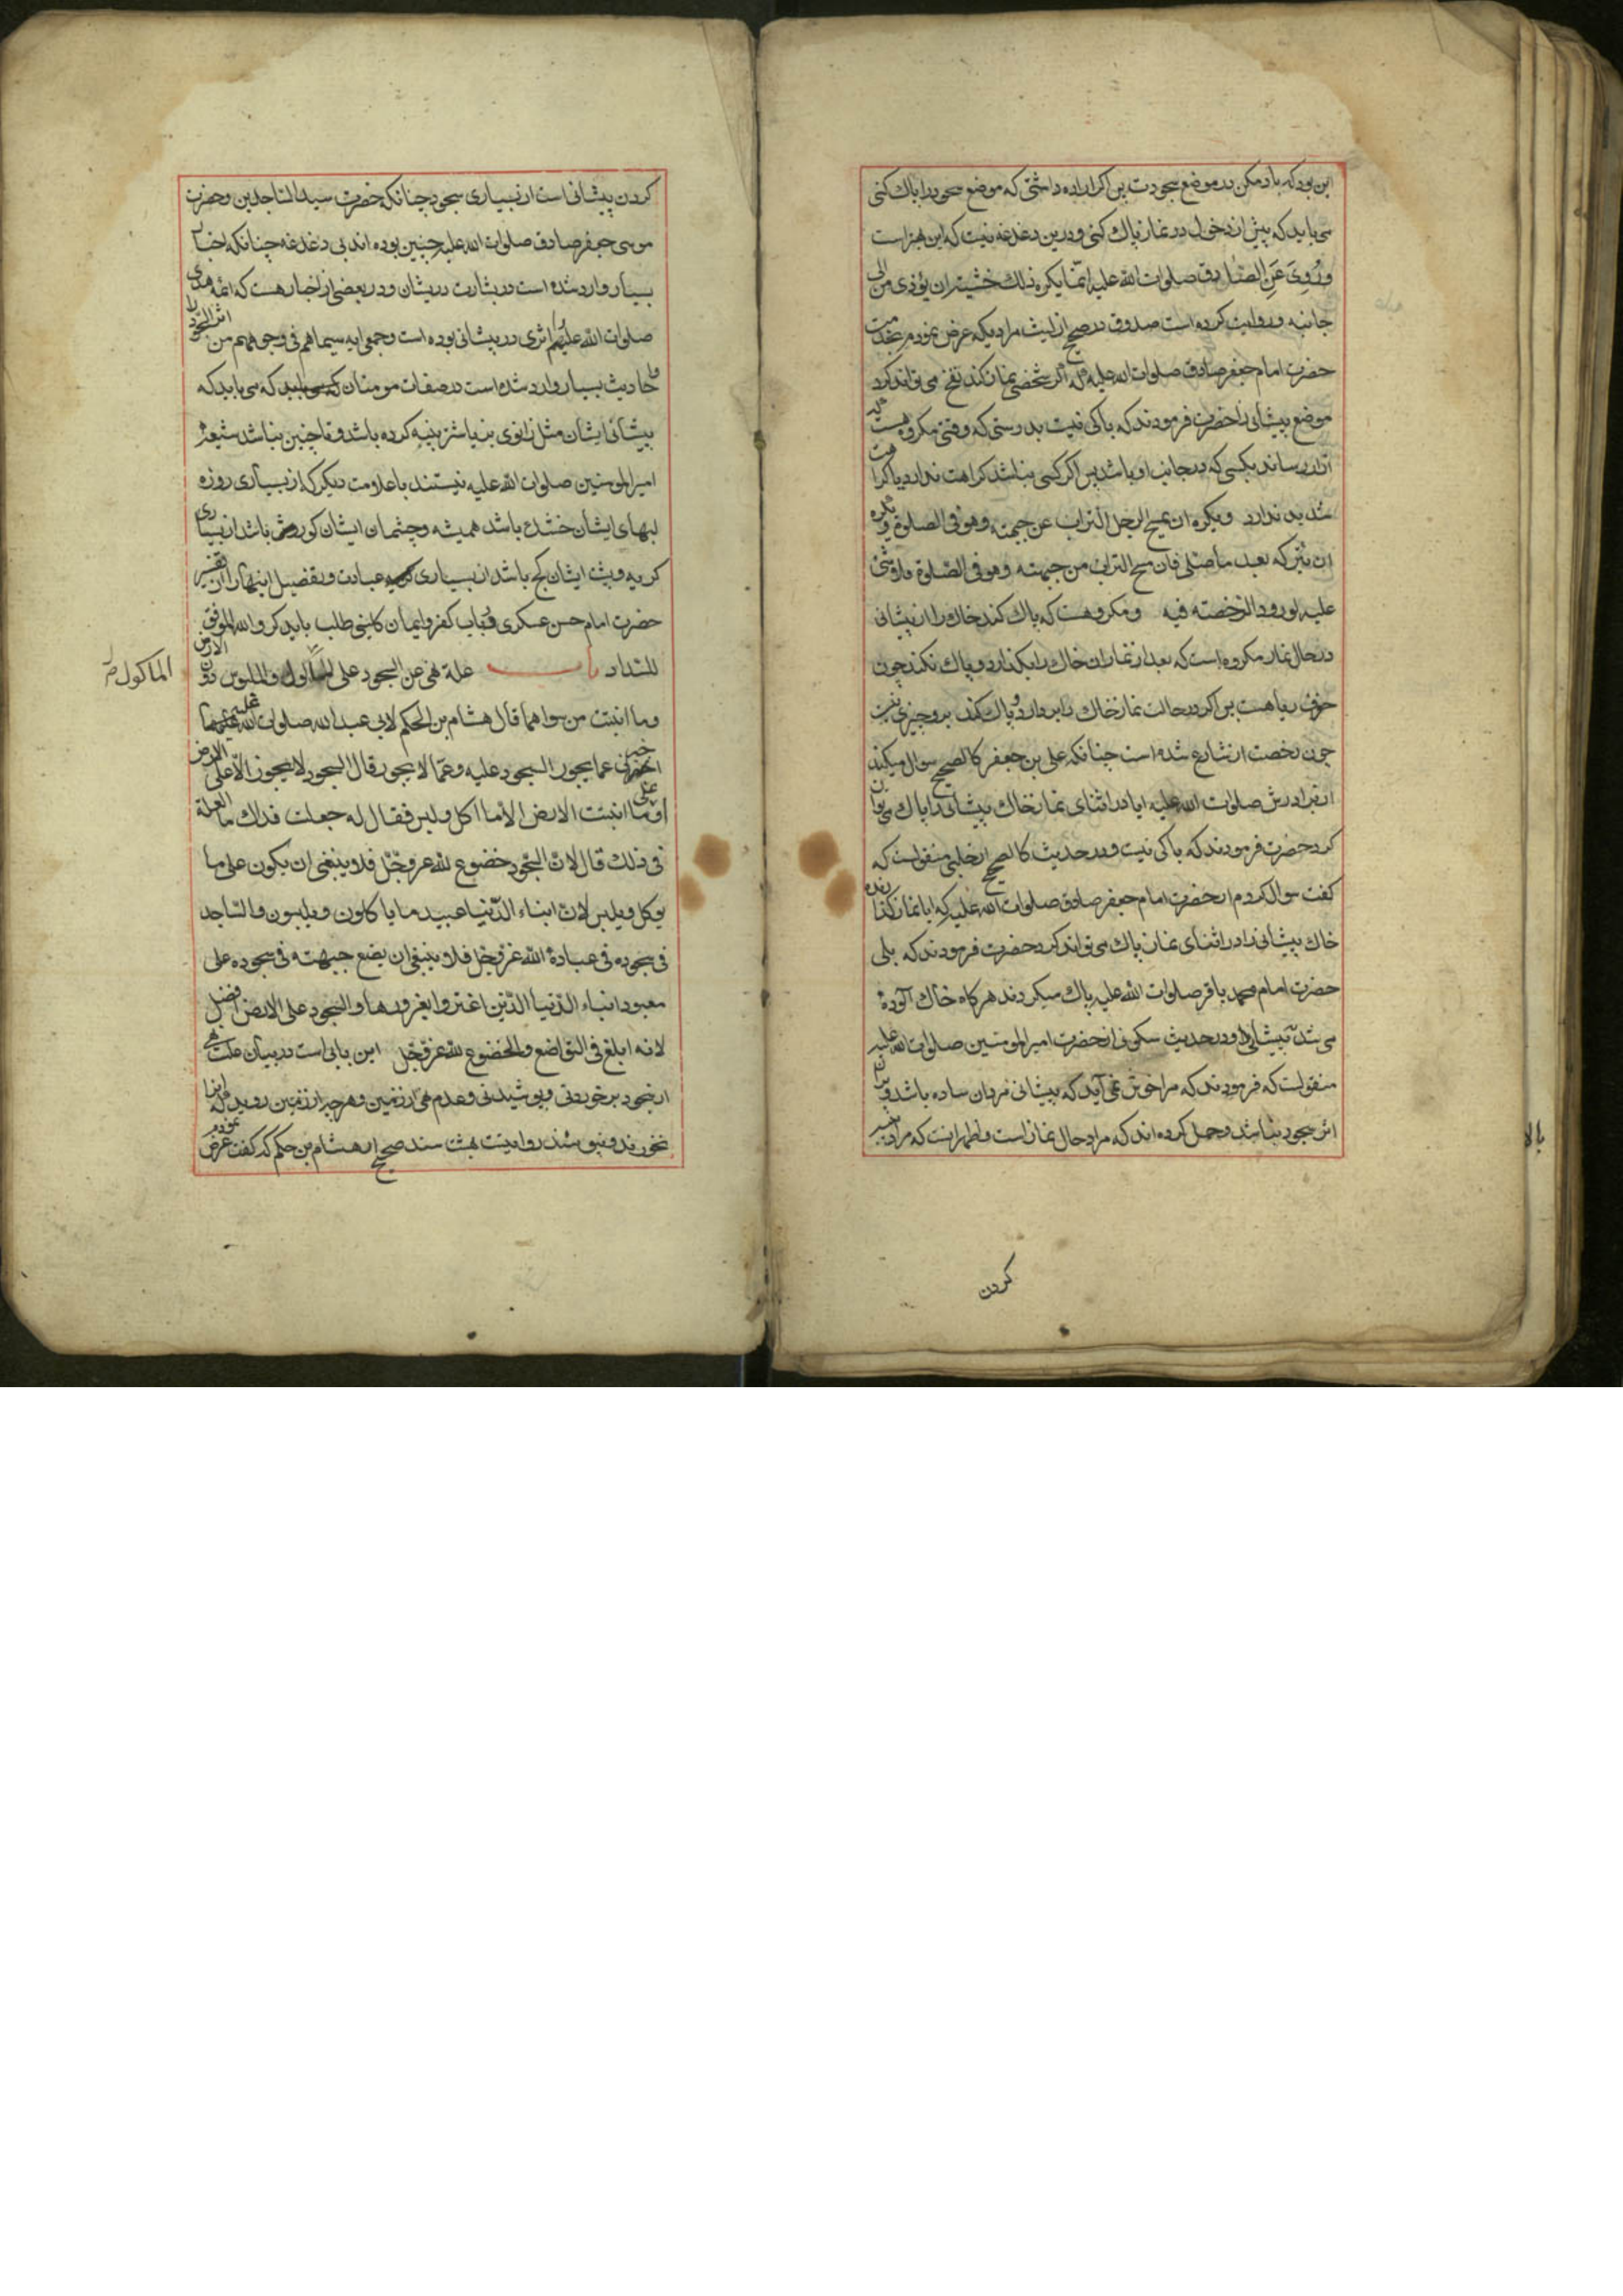 این بود که باد مکن در موضع سجودت پس اگر اراده داشتی که موضع سجود را پاک کنی
می باید که پیش از دخول در نماز پاک کنی و درین دغدغه نیست که این بهتر است
وَرُوِیَ عَنِ الصّادق صلوات الله علیه انّما یکره ذلک خشیة ان یؤذی من الی
جانبه و روایت کرده است صدوق در صحیح از لیث مرادی که عرض نمودم بخدمت
حضرت امام جعفر صادق صلوات الله علیه که اگر شخصی نماز کند نفخ می تواند کرد
موضع پیشانی را حضرت فرمودند که باکی نیست بدرستی که وقتی مکروهست که
آزار رساند بکسی که در جانب او باشد پس اگر کسی نباشد کراهت ندارد یا کراهت
شدید ندارد ویکره ان یمسح الرجل التراب عن جبهته وهو فی الصلوة ویکره
ان یترکه بعد ما صلّی فان مسح التراب من جبهته وهو فی الصّلوة فلا شئ
علیه لورود الرّخصة فیه و مکروهست که پاک کند خاک را از پیشانی
در حال نماز و مکروه است که بعد از نماز ان خاک را بگذارد و پاک نکند چون
خوف ریا هست پس اگر در حالت نماز خاک را بر دارد و پاک کند برو چیزی نیست
چون رخصت از شارع شده است چنانکه علی بن جعفر کالصحیح سوال میکند
از برادرش صلوات الله علیه ایا در اثنای نماز خاک پیشانی را پاک می توان
کرد حضرت فرمودند که باکی نیست و در حدیث کالصحیح از حلبی منقولست که
گفت سوال کردم از حضرت امام جعفر صادق صلوات الله علیه که ایا نماز گذارنده
خاک پیشانی را در اثنای نماز پاک می تواند کرد حضرت فرمودند که بلی
حضرت امام محمد باقر صلوات الله علیه پاک میکردند هرگاه خاک آلوده
می شد پیشانی او و در حدیث سکونی از حضرت امیر المومنین صلوات الله علیه
منقولست که فرمودند که مرا خوش نمی آید که پیشانی مردان ساده باشد و در آن
اثر سجود نباشد و حمل کرده اند که مراد حال نماز است و اظهر انست که مراد
کردن
کردن پیشانی است از بسیاری سجود چنانکه حضرت سید الساجدین و حضرت
موسی جعفر صادق صلوات الله علیه چنین بوده اند بی دغدغه چنانکه اخبار
بسیار وارد شده است در بشارت در شان و در بعضی از اخبار هست که ائمه هدی را
صلوات الله علیهم اثری در پیشانی بوده است وجمعی ایه سیماهم فی وجوههم من اثر السجود
و احادیث بسیار وارد شده است در صفات مومنان که می باید که
پیشانی ایشان مثل زانوی بز یا شتر پینه کرده باشد و تا چنین نباشد شیعه
امیر المومنین صلوات الله علیه نیستند با علامت دیگر که از بسیاری روزه
لبهای ایشان خشک باشد همیشه و چشمان ایشان کور وش باشد از بسیاری
گریه و پشت ایشان کج باشد از بسیاری عبادت و تفصیل اینها را از تفسیر
حضرت امام حسن عسکری و باب کفر و ایمان کلینی طلب باید کرد والله الموفق
للسّداد باب علة نهی عن السجود علی الماکول والملبوس دون الارض
الماکول
وما انبتت من سواهما قال هشام بن الحکم لابی عبد الله صلوات الله علیه
اخبرنی عما یجوز السجود علیه وعمّا لا یجوز قال السجود لا یجوز الّا علی الارض
او علی ما انبتت الارض الّا ما اکل ولبس فقال له جعلت فداک ما العلة
فی ذلک قال لانّ السّجود خضوع لله عزّ وجلّ فلا ینبغی ان یکون علی ما
یوکل ویلبس لانّ ابناء الدّنیا عبید ما یاکلون ویلبسون والسّاجد
فی سجوده فی عبادة الله عزّ وجلّ فلا ینبغی ان یضع جبهته فی سجوده علی
معبود ابناء الدّنیا الّذین اغترّوا بغرورها والسّجود علی الارض افضل
لانه ابلغ فی التواضع والخضوع لله عزّ وجلّ این بابی است در بیان علت نهی
از سجود بر خوردنی و پوشیدنی و عدم نهی از زمین و هر چه از زمین روید که انرا
نخورند و نپوشند روایتست بهشت سند صحیح از هشام بن حکم که گفت عرض نمودم